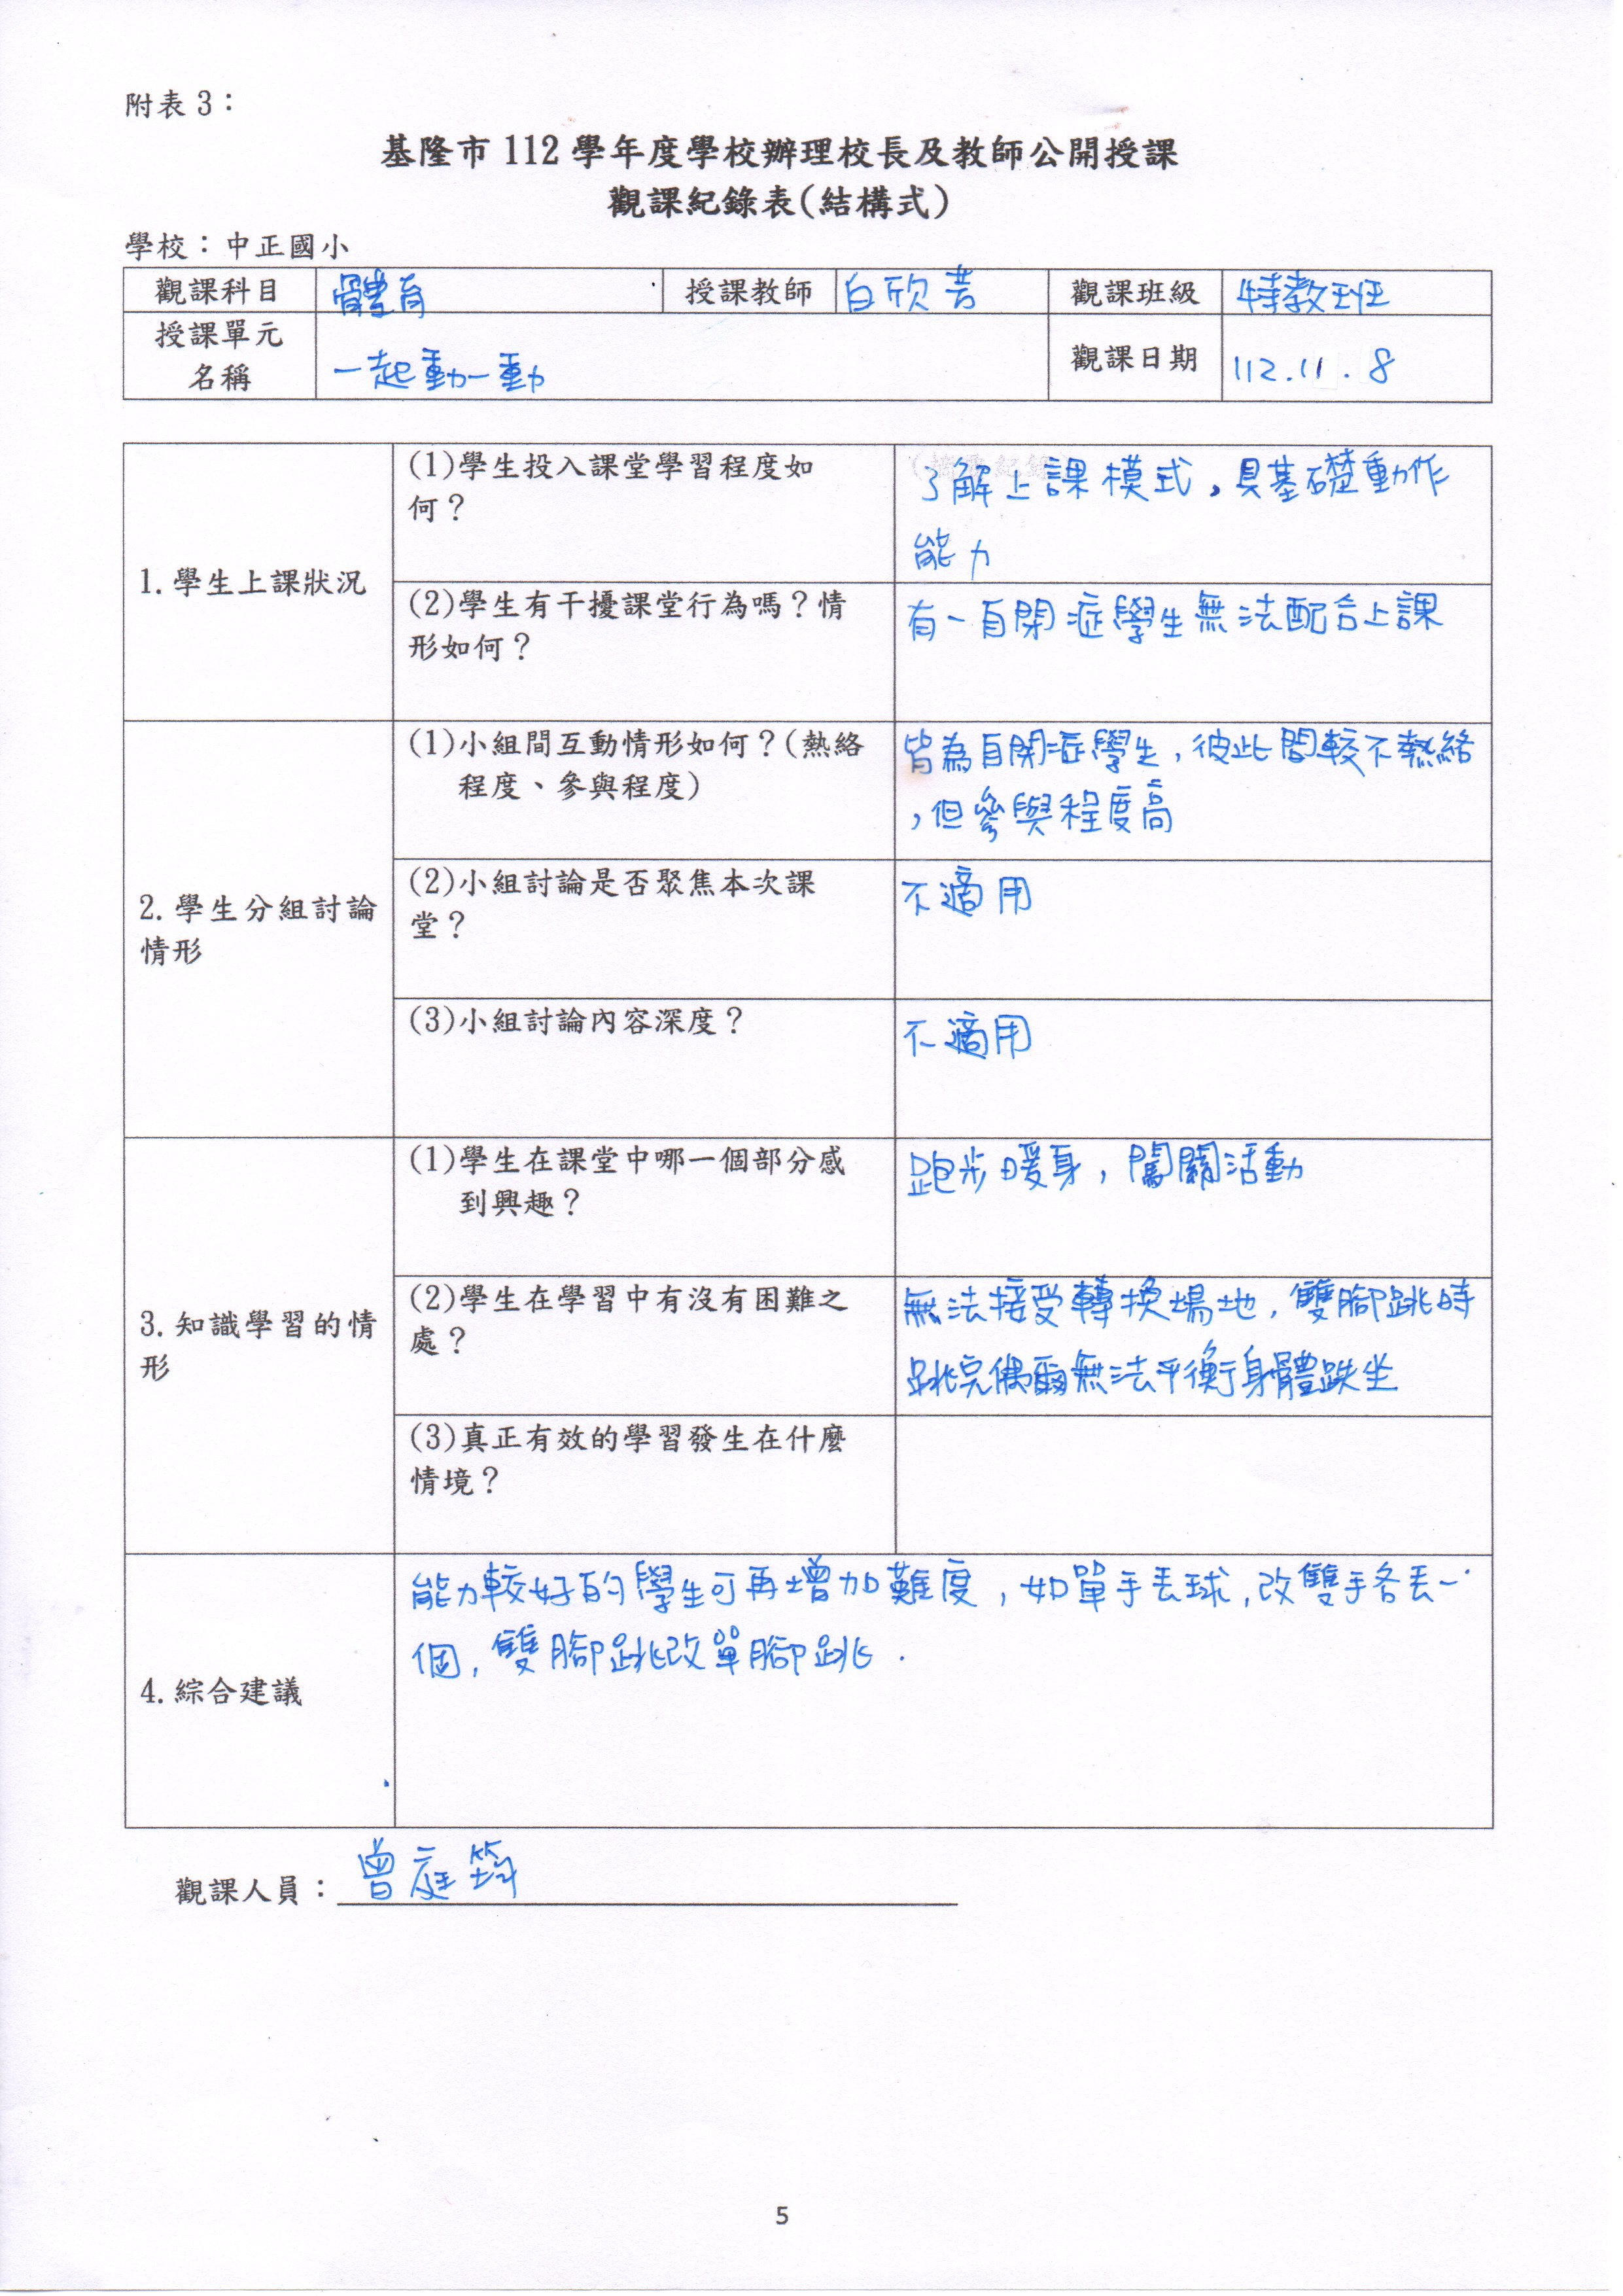 附表 3：
基隆市 112 學年度學校辦理校長及教師公開授課
觀課紀錄表(結構式)
學校：中正國小
觀課科目 體育 授課教師 白欣 觀課班級 特教班
授課單元
名稱 一起動一動 觀課日期 112.11.8
1.學生上課狀況
(1)學生投入課堂學習程度如
何？
了解上課模式，具基礎動作
能力
(2)學生有干擾課堂行為嗎？情
形如何？
有一自閉症學生無法配合上課
2.學生分組討論
情形
(1)小組間互動情形如何？(熱絡
程度、參與程度)
皆為自閉症學生，彼此間較不熱絡
，但參與程度高
(2)小組討論是否聚焦本次課
堂？
不適用
(3)小組討論內容深度？
不適用
3.知識學習的情
形
(1)學生在課堂中哪一個部分感
到興趣？
跑步暖身，闖關活動
(2)學生在學習中有沒有困難之
處？
無法接受轉換場地，雙腳跳時
跳完偶爾無法平衡身體跌坐
(3)真正有效的學習發生在什麼
情境？
4.綜合建議
能力較好的學生可再增加難度，如單手丟球，改雙手各丟一
個，雙腳跳改單腳跳．
觀課人員：曾庭筠
5